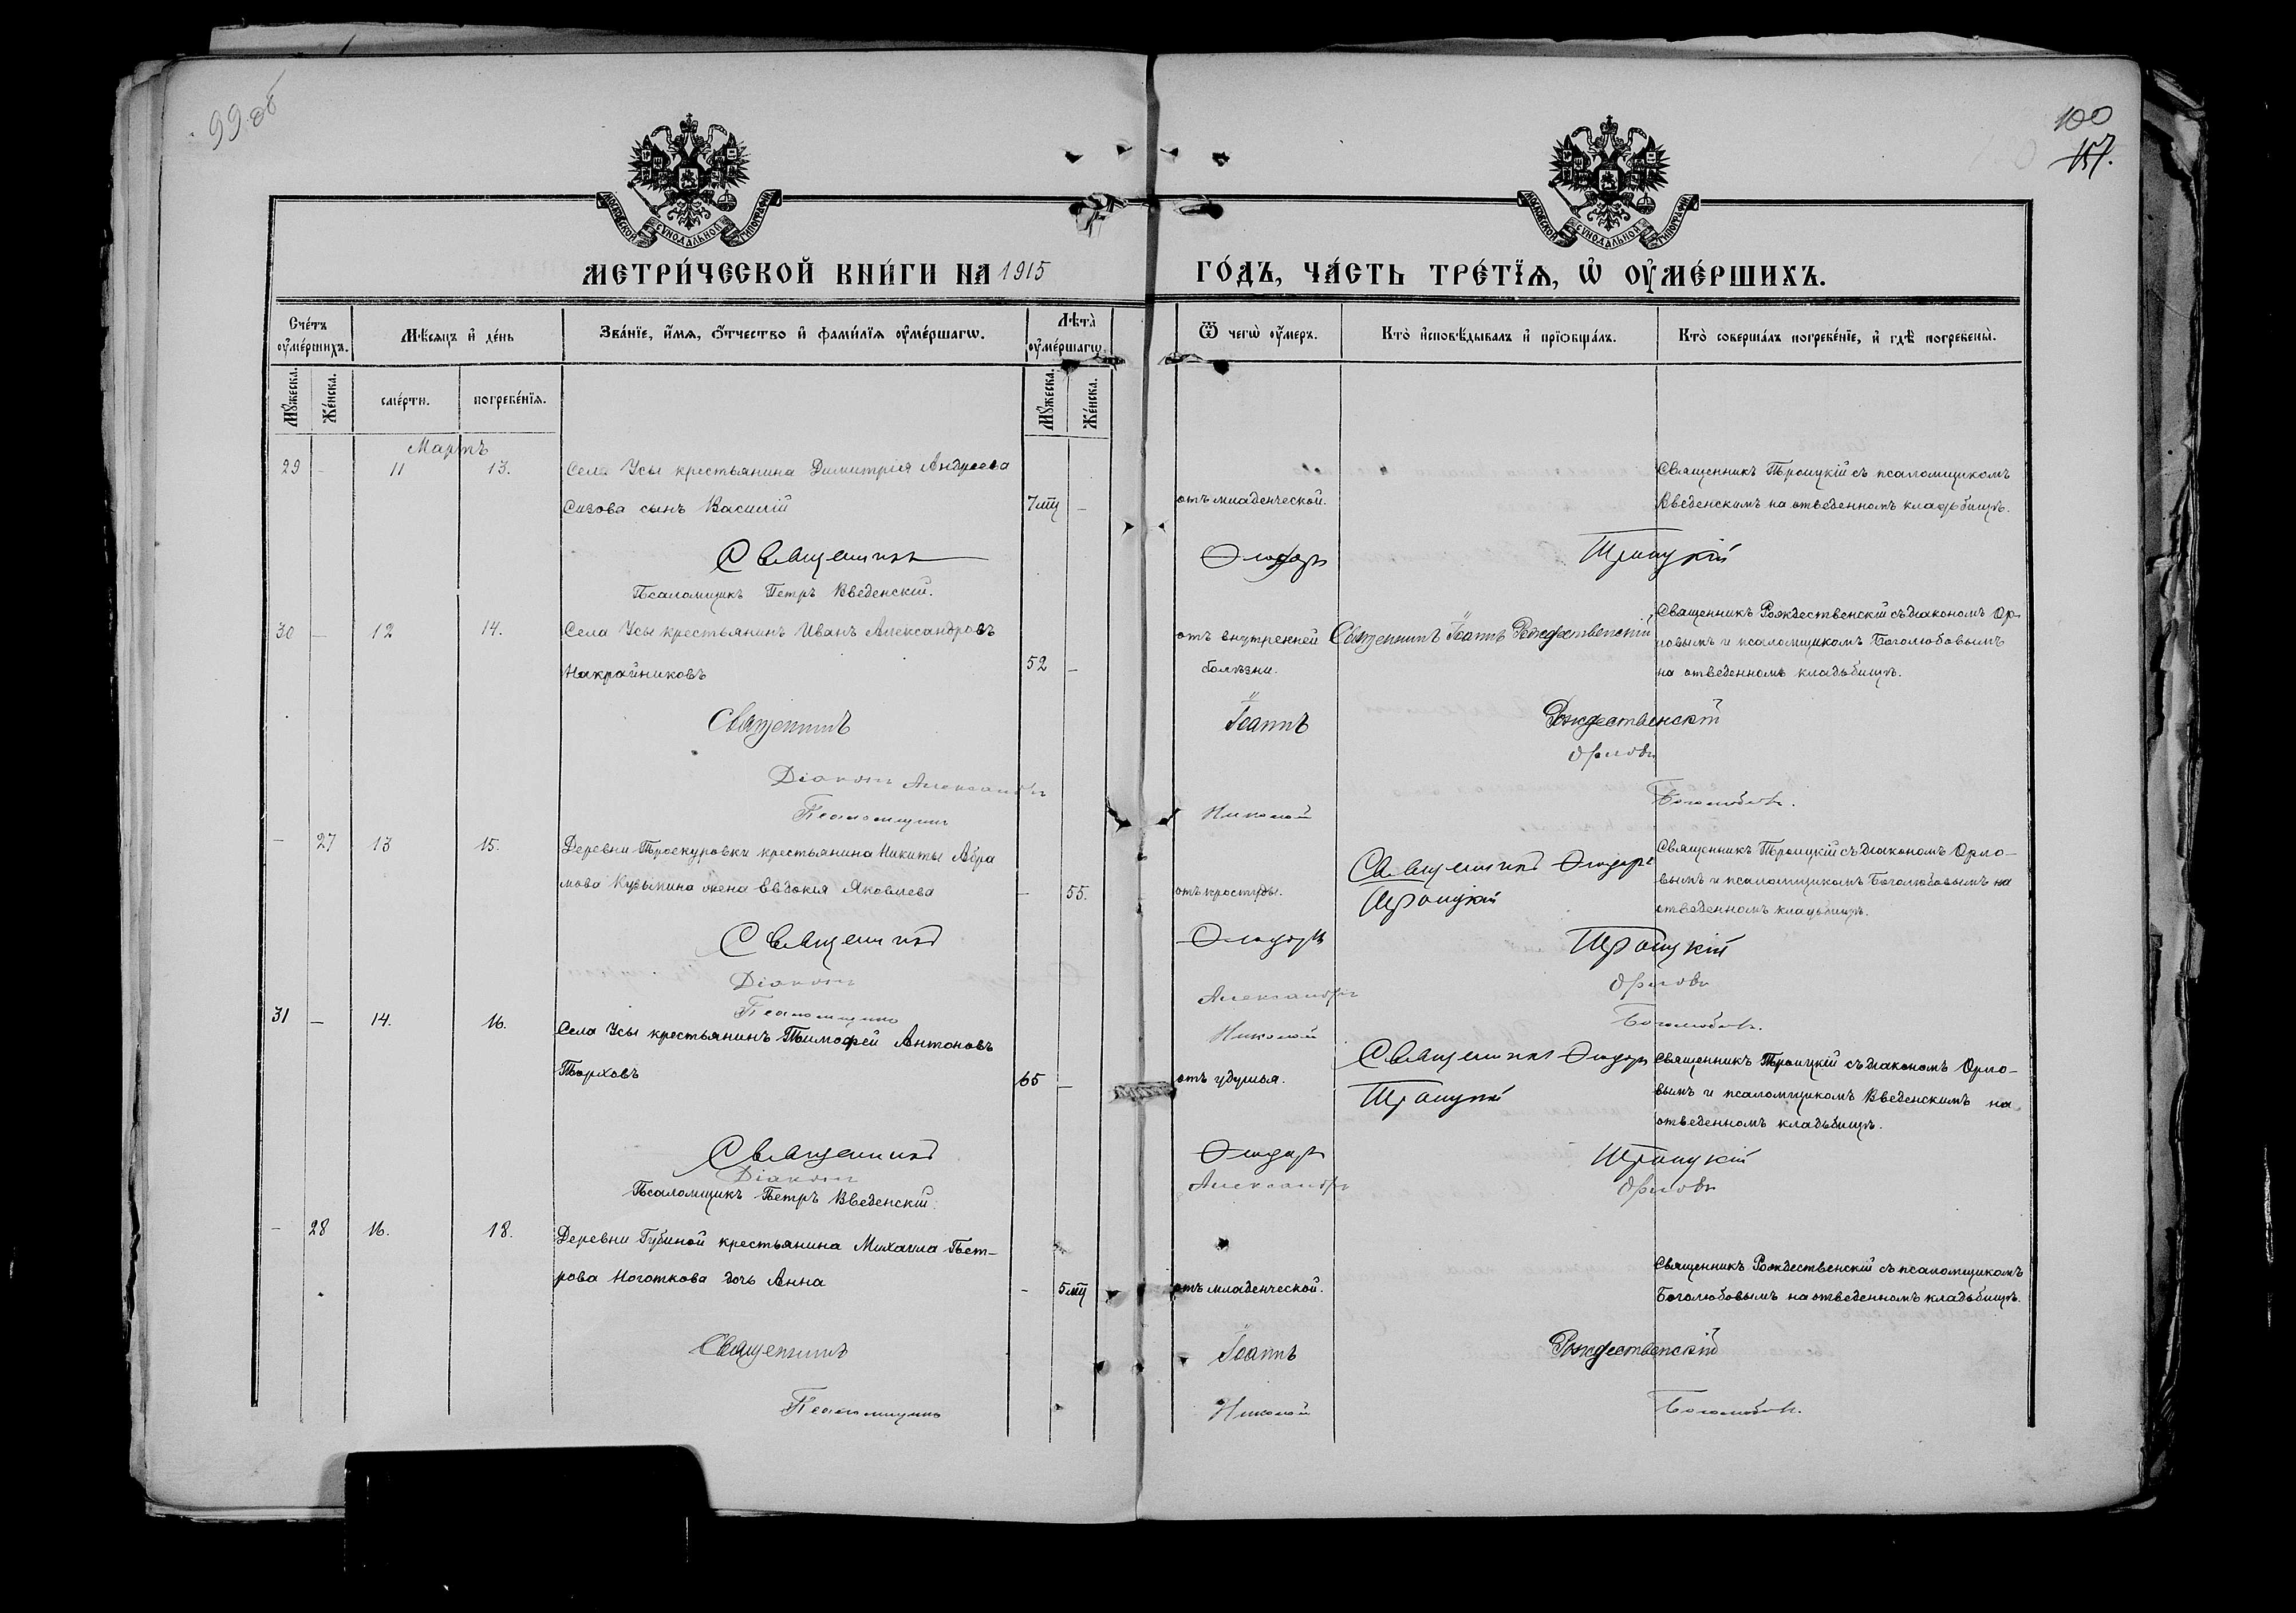 99 об
100
157.
МОСКОВСКОЙ СѴНОДАЛЬНОЙ ТИПОГРАФІИ
МОСКОВСКОЙ СѴНОДАЛЬНОЙ ТИПОГРАФІИ
МЕТРИ́ЧЕСКОЙ КНИ́ГИ НА 1915 ГО́ДЪ, ЧА́СТЬ ТРЕ́ТЇѦ, Ѡ҆ ОУ҆МЕ́РШИХЪ.
Сче́тъ оу҆ме́ршихъ.
Мѣ́сяцъ и҆ де́нь
Зва́нїе, и҆́мѧ, ѻ҆́тчество и҆ фами́лїѧ оу҆ме́ршагѡ.
Лѣта̀ оу҆ме́ршагѡ.
Ѿ чегѡ̀ оу҆́меръ.
Кто̀ и҆сповѣ́дывалъ и҆ прїѡбща́лъ.
Кто̀ соверша́лъ погребе́нїе, и҆ гдѣ̀ погребены̀.
Мꙋ́жеска.
Же́нска.
сме́рти.
погребе́нїѧ.
Мꙋ́жеска.
Же́нска.
Мартъ
29 - 11 13. Села Усы крестьянина Димитрія Андреева
Сизова сынъ Василій 7 мц -
отъ младенческой.
Священникъ Троицкій съ псаломщикомъ
Введенскимъ на отведенномъ кладьбищѣ.
Священникъ Элидоръ Троицкій
Псаломщикъ Петръ Введенскій.
30 - 12 14. Села Усы крестьянинъ Иванъ Александровъ
Накрайниковъ 52 -
отъ внутренней
болѣзни.
Священникъ Іоаннъ Рождественскій
Священникъ Рождественскій съ діакономъ Ор-
ловымъ и псаломщикомъ Боголюбовымъ
на отведенномъ кладьбищѣ.
Священникъ Іоаннъ Рождественскій
Діаконъ Александръ Орловъ
Псаломщикъ Николай Боголюбовъ.
- 27 13 15. Деревни Троекуровки крестьянина Никиты Абра
мова Кузьмина жена Евдокия Яковлева - 55.
отъ простуды.
Священникъ Элидоръ
Троицкій
Священникъ Троицкій съ діакономъ Орло-
вымъ и псаломщикомъ Боголюбовымъ на
отведенномъ кладьбищѣ.
Священникъ Элидоръ Троицкій
Діаконъ Александръ Орловъ
Псаломщикъ Николай Боголюбовъ.
31 - 14. 16. Села Усы крестьянинъ Тимофей Антоновъ
Торховъ 65 -
отъ удушья.
Священникъ Элидоръ
Троицкій
Священникъ Троицкій съ діакономъ Орло-
вымъ и псаломщикомъ Введенскимъ на
отведенномъ кладьбищѣ.
Священникъ Элидоръ Троицкій
Діаконъ Александръ Орловъ
Псаломщикъ Петръ Введенскій.
- 28 16. 18. Деревни Губиной крестьянина Михаила Пет-
рова Ноготкова дочь Анна - 5 мц
отъ младенческой.
Священникъ Рождественскій съ псаломщикомъ
Боголюбовымъ на отведенномъ кладьбищѣ.
Священникъ Іоаннъ Рождественскій
Псаломщикъ Николай Боголюбовъ.